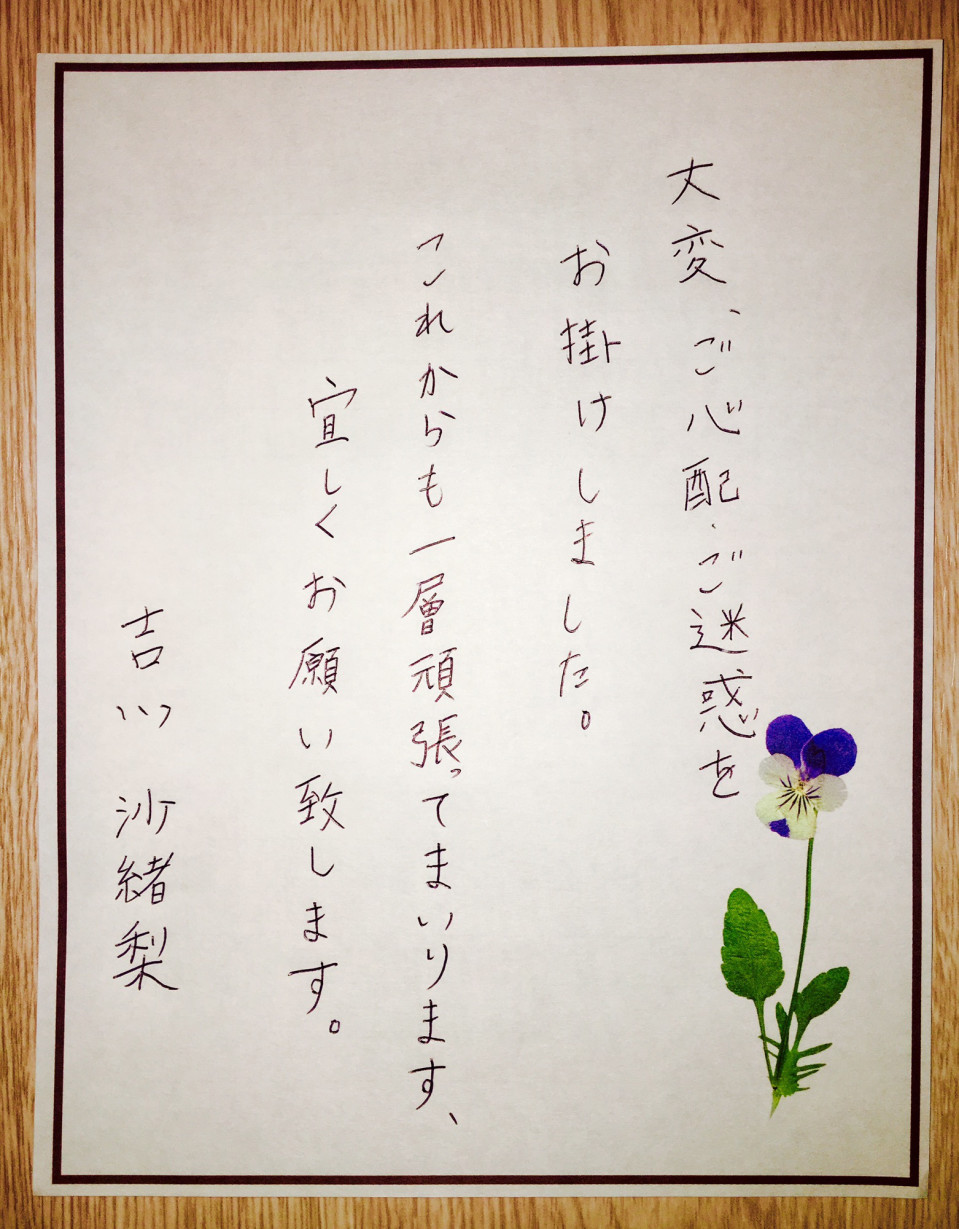 大変、ご心配、ご迷惑を
お掛けしました。
これからも一層頑張ってまいります、
宜しくお願い致します。
吉川 沙緒梨